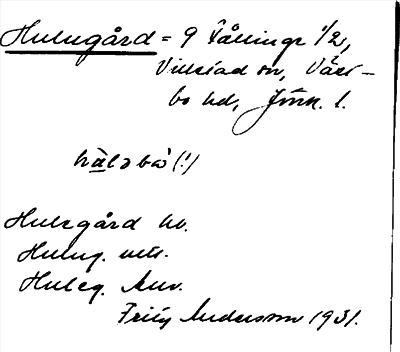 Hulugård = 9 Tållinge 1/2,
Villstad sn, Väst-
bo hd, Jönk. l.
hằləbə (!)
Hulegård hv.
Hulug. utt.
Huleg. kuv.
Fritz Andersson 1931.